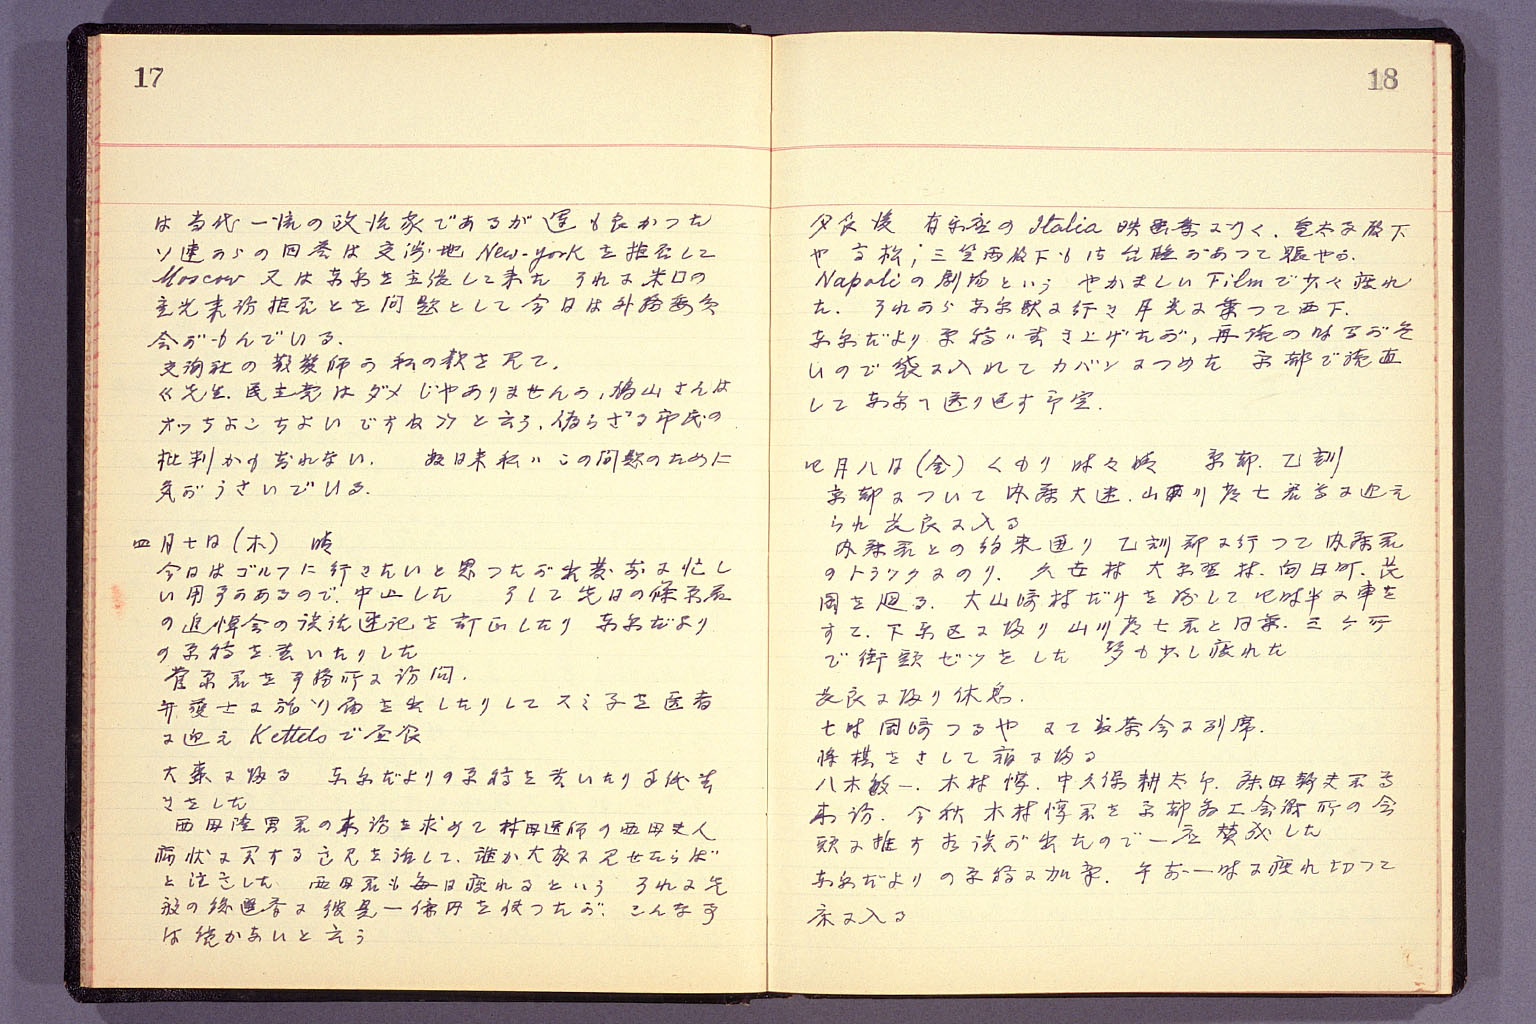 17
は当代一流の政治家であるが運も良かつた
ソ連からの回答は交渉地New-yorkを拒否して
Moscow 又は東京を主張して来た それに米国の
重光来訪拒否とを問題として今日は外務委員
会がもんでいる.
交詢社の散髪師が私の歓を見て.
≪先生.民主党はダメじやありませんか,鳩山さんは
オツちよこちよいですね≫と云う.偽らざる市民の
批判かも知れない. 数日来私はこの問題のために
気がうさいでいる.
四月七日(木) 晴
今日はゴルフに行きたいと思つたが出発前に忙し
い用事があるので.中止した そして先日の篠原君
の追悼会の談話速記を訂正したり 東京だより
の原稿を書いたりした
菅原君を事務所に訪問.
弁護士に 届を出したりしてスミ子を医者
に迎え Kettelsで昼食
大森に帰る 東京だよりの原稿を書いたり手紙書
きをした
西田隆男君の来訪を求めて林田医師の西田夫人
病状に関する意見を話して.誰か大家に見せたらば
と注意した 西田君も毎日疲れるという それに先
般の総選挙に彼是一億円を使つたが.こんな事
は続かないと云う
18
夕食後 有楽座のItalia映画祭に行く.皇太子殿下
や高松;三笠両殿下も御台臨があつて賑やか.
Napoliの劇場という やかましいFilmで少々疲れ
た. それから東京駅に行き月光に乗つて西下.
東京だより原稿は書き上げたが,再読の時間がな
いので袋に入れてカバンにつめた 京都で読直
して東京へ送り返す予定.
四月八日(金) くもり 時々晴 京都.乙訓
京都について内藤大進.山西川彦七君等に迎え
られ 長良に入る
内藤君との約束通り 乙訓郡に行つて内藤君
のトラツクにのり. 久世村 大原野村.向日町.長
岡を廻る. 大山崎村だけを残して四時半に車を
すて.下京区に帰り山川彦七君と同乗.三ケ所
で街頭ゼツをした 声も少し疲れた
長良に帰り休息.
七時 岡崎つるや にて 茶会に列席.
将棋をさして宿に帰る
八木敏一.木村惇.中久保耕太郎.藤田幹夫君等
来訪.今秋木村惇君を京都商工会議所の会
頭に推す相談が出たので一応賛成した
東京だよりの原稿に加筆.午前一時に疲れ切つて
床に入る